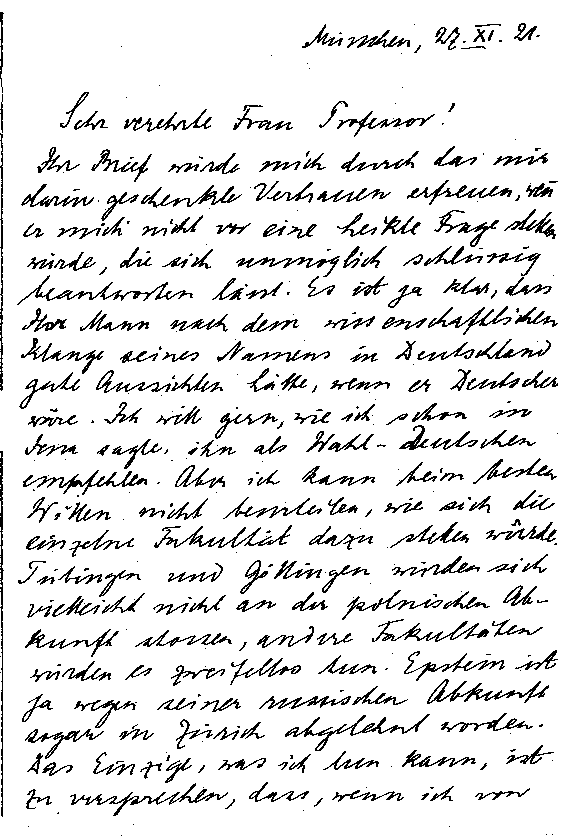 München, 27. XI. 21.
Sehr verehrte Frau Professor!
Ihr Brief würde mich durch das mir
darin geschenkte Vertrauen erfreuen, wen
er mich nicht vor eine heikle Frage stellen
würde, die sich unmöglich schlüssig
beantworten lässt. Es ist ja klar, dass
Ihr Mann nach dem wissenschaftlichen
Klange seines Namens in Deutschland
gute Aussichten hätte, wenn er Deutscher
wäre. Ich will gern, wie ich schon in
Jena sagte, ihn als Wahl-Deutschen
empfehlen. Aber ich kann beim besten
Willen nicht beurteilen, wie sich die
einzelne Fakultät dazu stellen würde.
Tübingen und Göttingen würden sich
vielleicht nicht an der polnischen Ab-
kunft stossen, andere Fakultäten
würden es zweifellos tun. Epstein ist
ja wegen seiner russischen Abkunft
sogar in Zürich abgelehnt worden.
Das Einzige, was ich tun kann, ist
zu versprechen, dass, wenn ich von